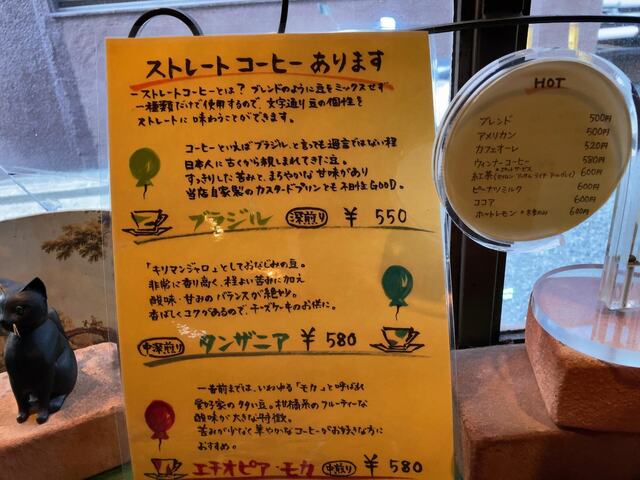 ストレートコーヒーあります
ーストレートコーヒーとは? ブレンドのように豆をミックスせず
一種類だけで使用するので、文字通り豆の個性を
ストレートに味わうことができます。
コーヒーといえばブラジル、と言っても過言ではない程
日本人に古くから親しまれてきた豆。
すっきりした苦みと、まろやかな甘味があり
当店自家製のカスタードプリンとも相性GOOD。
ブラジル 深煎り ¥550
「キリマンジャロ」としておなじみの豆。
非常に香り高く、程よい苦みに加え
酸味・甘みのバランスが絶妙。
香ばしくコクがあるので、チーズケーキのお供に。
中深煎り タンザニア ¥580
一昔前までは、いわゆる「モカ」と呼ばれ
愛好家の多い豆。柑橘系のフルーティーな
酸味が大きな特徴。
苦みが少なく華やかなコーヒーがお好きな方に
おすすめ。
エチオピア・モカ 中煎り ¥580
HOT
ブレンド 500円
アメリカン 500円
カフェオーレ 520円
ウィンナーコーヒー 580円
紅茶 600円
ピーナツミルク 600円
ココア 600円
ホットレモン 600円